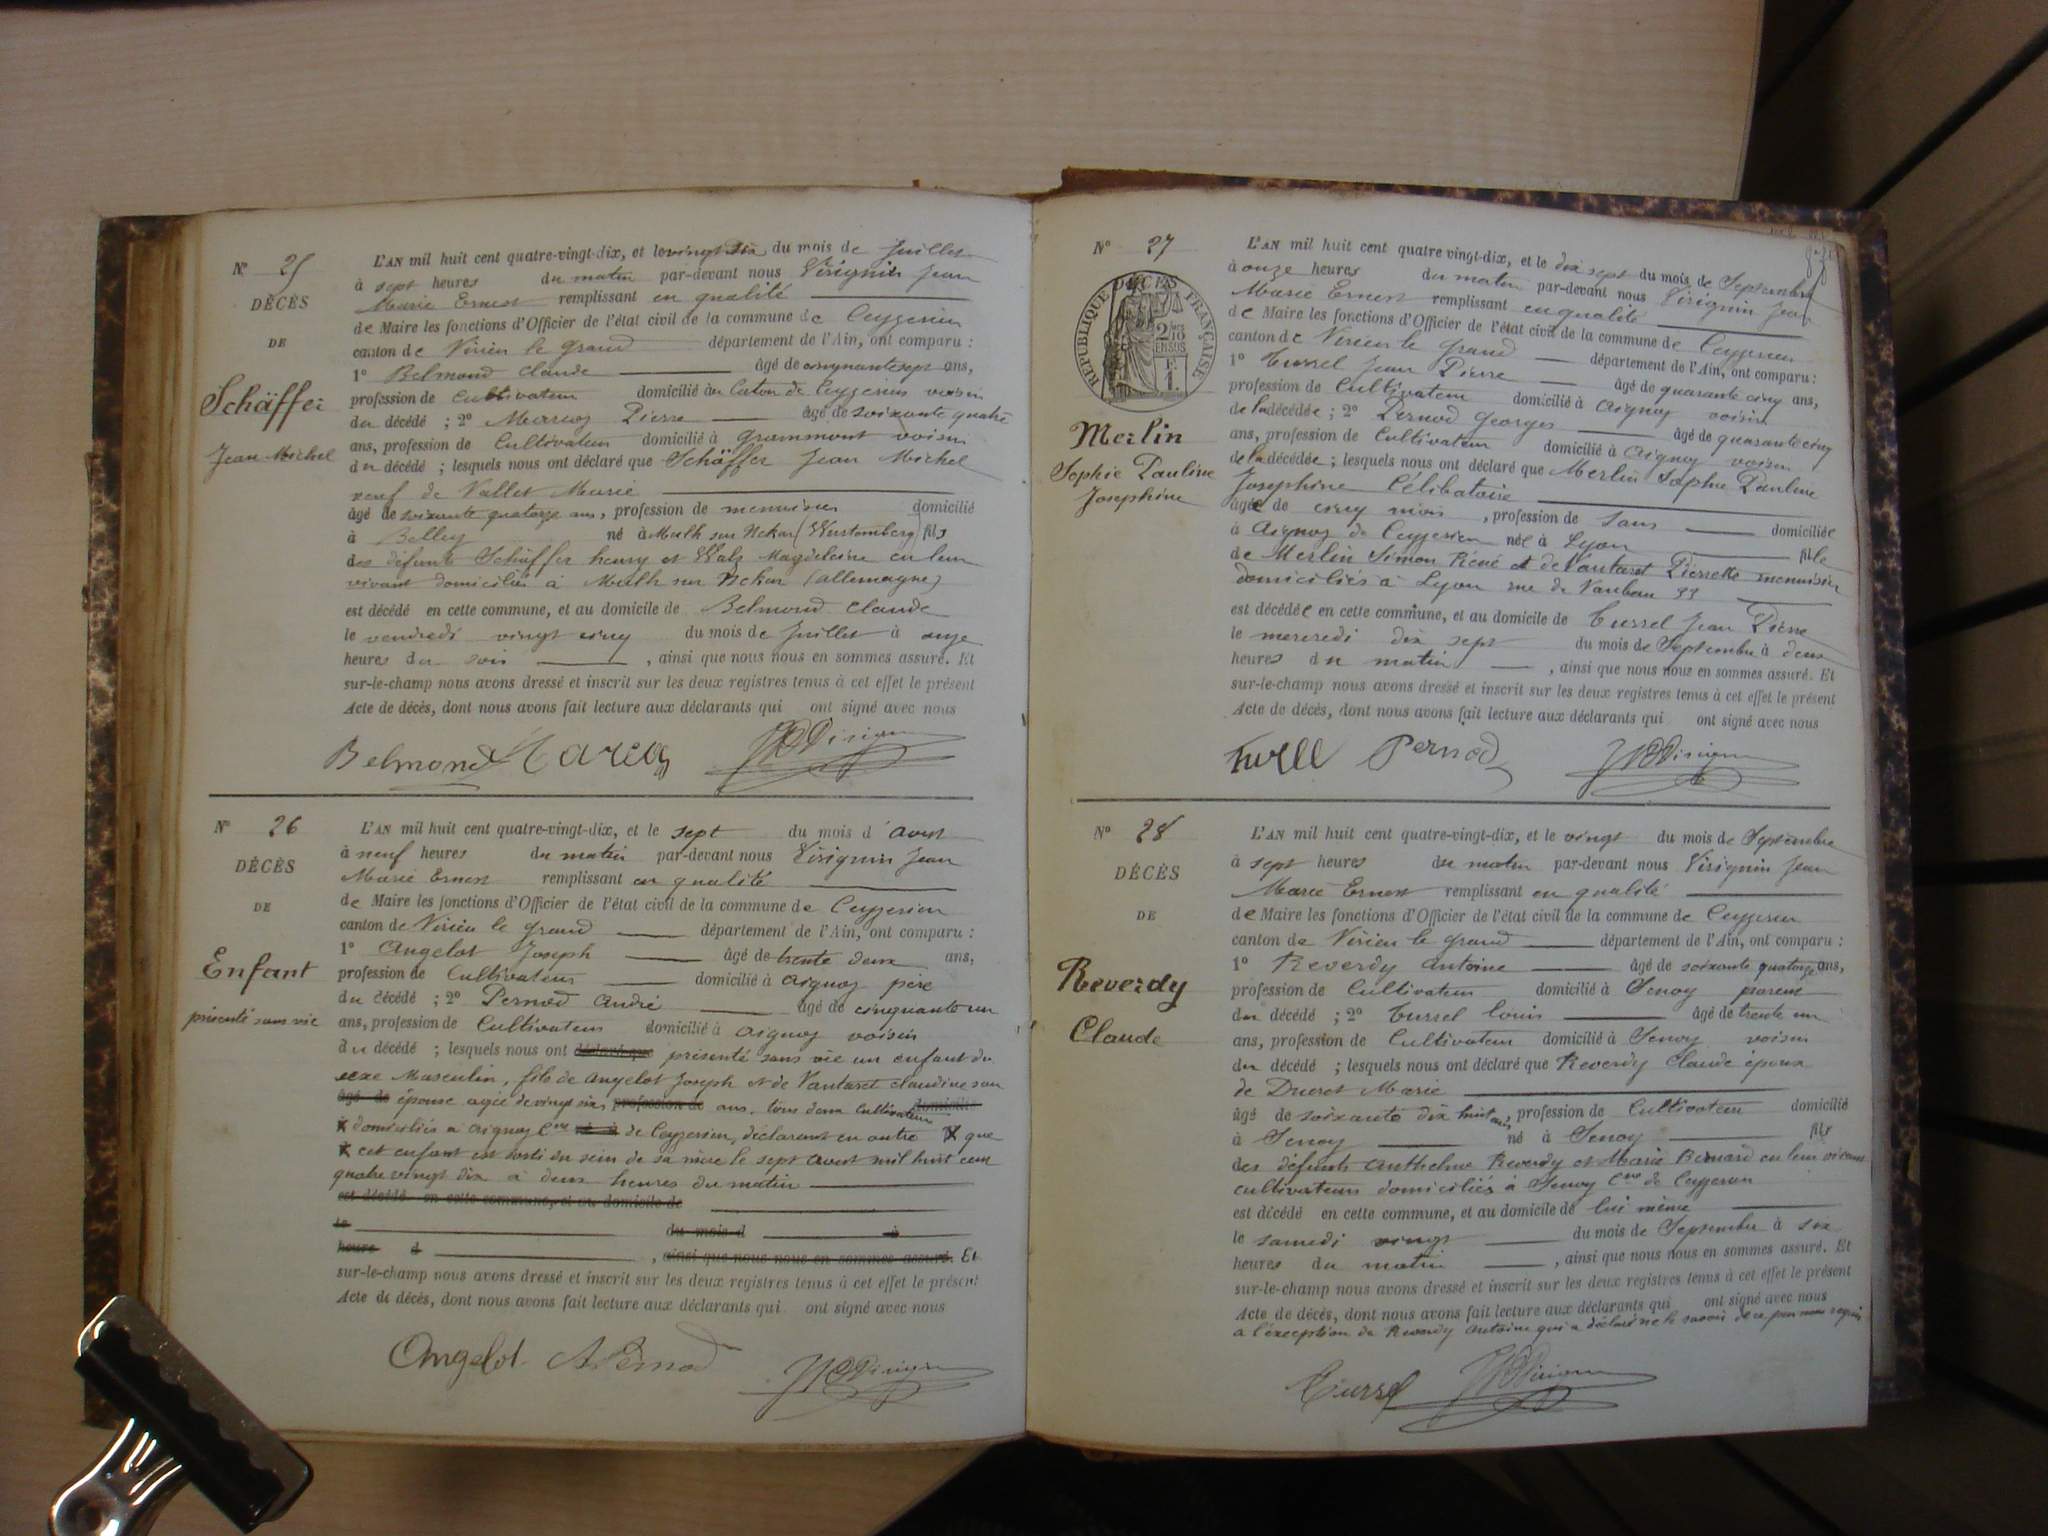 N° 25
DÉCÈS
DE
Schäffer
Jean Michel
L'AN mil huit cent quatre-vingt-dix, et le vingt six du mois de Juillet
à sept heures du matin par-devant nous Virignin Jean
Marie Ernest remplissant en qualité
de Maire les fonctions d'Officier de l'état civil de la commune de Ceyzerieu
canton de Virieu le grand département de l'Ain, ont comparu :
1° Belmond Claude âgé de cinquante sept ans,
profession de Cultivateur domicilié au Caton de Ceyzerieu voisin
du décédé ; 2° Marcoz Pierre âgé de soixante quatre
ans, profession de Cultivateur domicilié à Grammont voisin
du décédé ; lesquels nous ont déclaré que Schäffer Jean Michel
veuf de Vallet Marie
âgé de soixante quatorze ans, profession de menuisier domicilié
à Belley né à Mulh sur Nekar (Wurtemberg) fils
des défunts Schäffer henry et Walz Magdeleine en leur
vivant domiciliés à Mulh sur Nekar (allemagne)
est décédé en cette commune, et au domicile de Belmond Claude
le vendredi vingt cinq du mois de Juillet à onze
heures du soir , ainsi que nous nous en sommes assuré. Et
sur-le-champ nous avons dressé et inscrit sur les deux registres tenus à cet effet le présent
Acte de décès, dont nous avons fait lecture aux déclarants qui ont signé avec nous
Belmond Marcoz
N° 26
DÉCÈS
DE
Enfant
présenté sans vie
L'AN mil huit cent quatre-vingt-dix, et le sept du mois d'avout
à neuf heures du matin par-devant nous Virignin Jean
Marie Ernest remplissant en qualité
de Maire les fonctions d'Officier de l'état civil de la commune de Ceyzerieu
canton de Virieu le grand département de l'Ain, ont comparu :
1° Angelot Joseph âgé de trente deux ans,
profession de Cultivateur domicilié à aignoz père
du décédé ; 2° Pernod André âgé de cinquante un
ans, profession de Cultivateur domicilié à aignoz voisin
du décédé ; lesquels nous ont déclaré que présenté sans vie un enfant du
sexe Masculin, fils de angelot Joseph et de Vantaret claudine son
âgé de épouse agée de vingt six, profession de ans, tous deux Cultivateurs domicilié
domiciliés à aignoz Cne né à de Ceyzerieu, déclarent en outre que
cet enfant est sorti du sein de sa mère le sept avout mil huit cent
quatre vingt dix à deux heures du matin
est décédé en cette commune, et au domicile de
le du mois d à
heure d , ainsi que nous nous en sommes assuré. Et
sur-le-champ nous avons dressé et inscrit sur les deux registres tenus à cet effet le présent
Acte de décès, dont nous avons fait lecture aux déclarants qui ont signé avec nous
Angelot A Pernod
N° 27
DÉCÈS
RÉPUBLIQUE FRANÇAISE
2/10 EN SUS
F. 1.
Merlin
Sophie Pauline
Josephine
L'AN mil huit cent quatre-vingt-dix, et le dix sept du mois de Septembre
à onze heures du matin par-devant nous Virignin Jean
Marie Ernest remplissant en qualité
de Maire les fonctions d'Officier de l'état civil de la commune de Ceyzerieu
canton de Virieu le grand département de l'Ain, ont comparu :
1° Tussel Jean Pierre âgé de quarante cinq ans,
profession de Cultivateur domicilié à aignoz voisin
de la décédée ; 2° Pernod Georges âgé de quarante cinq
ans, profession de Cultivateur domicilié à aignoz voisin
de la décédée ; lesquels nous ont déclaré que Merlin Sophie Pauline
Josephine Célibataire
âgée de cinq mois , profession de sans domiciliée
à aignoz de Ceyzerieu née à Lyon fille
de Merlin Simon René et de Vantaret Pierrette menuisier
domiciliés à Lyon rue de Vauban 33
est décédée en cette commune, et au domicile de Tussel Jean Pierre
le mercredi dix sept du mois de Septembre à deux
heures du matin , ainsi que nous nous en sommes assuré. Et
sur-le-champ nous avons dressé et inscrit sur les deux registres tenus à cet effet le présent
Acte de décès, dont nous avons fait lecture aux déclarants qui ont signé avec nous
Pernod
N° 28
DÉCÈS
DE
Reverdy
Claude
L'AN mil huit cent quatre-vingt-dix, et le vingt du mois de Septembre
à sept heures du matin par-devant nous Virignin Jean
Marie Ernest remplissant en qualité
de Maire les fonctions d'Officier de l'état civil de la commune de Ceyzerieu
canton de Virieu le grand département de l'Ain, ont comparu :
1° Reverdy antoine âgé de soixante quatorze ans,
profession de Cultivateur domicilié à Senoy parent
du décédé ; 2° Tussel louis âgé de trente un
ans, profession de Cultivateur domicilié à Senoy voisin
du décédé ; lesquels nous ont déclaré que Reverdy Claude époux
de Ducret Marie
âgé de soixante dix huit ans, profession de Cultivateur domicilié
à Senoy né à Senoy fils
des défunts Anthelme Reverdy et Marie Bernard en leur vivant
cultivateurs domiciliés à Senoy Cne de Ceyzerieu
est décédé en cette commune, et au domicile de lui même
le samedi vingt du mois de Septembre à six
heures du matin , ainsi que nous nous en sommes assuré. Et
sur-le-champ nous avons dressé et inscrit sur les deux registres tenus à cet effet le présent
Acte de décès, dont nous avons fait lecture aux déclarants qui ont signé avec nous
a l'exception de Reverdy antoine qui a déclaré ne le savoir de ce par nous requis
Tussel